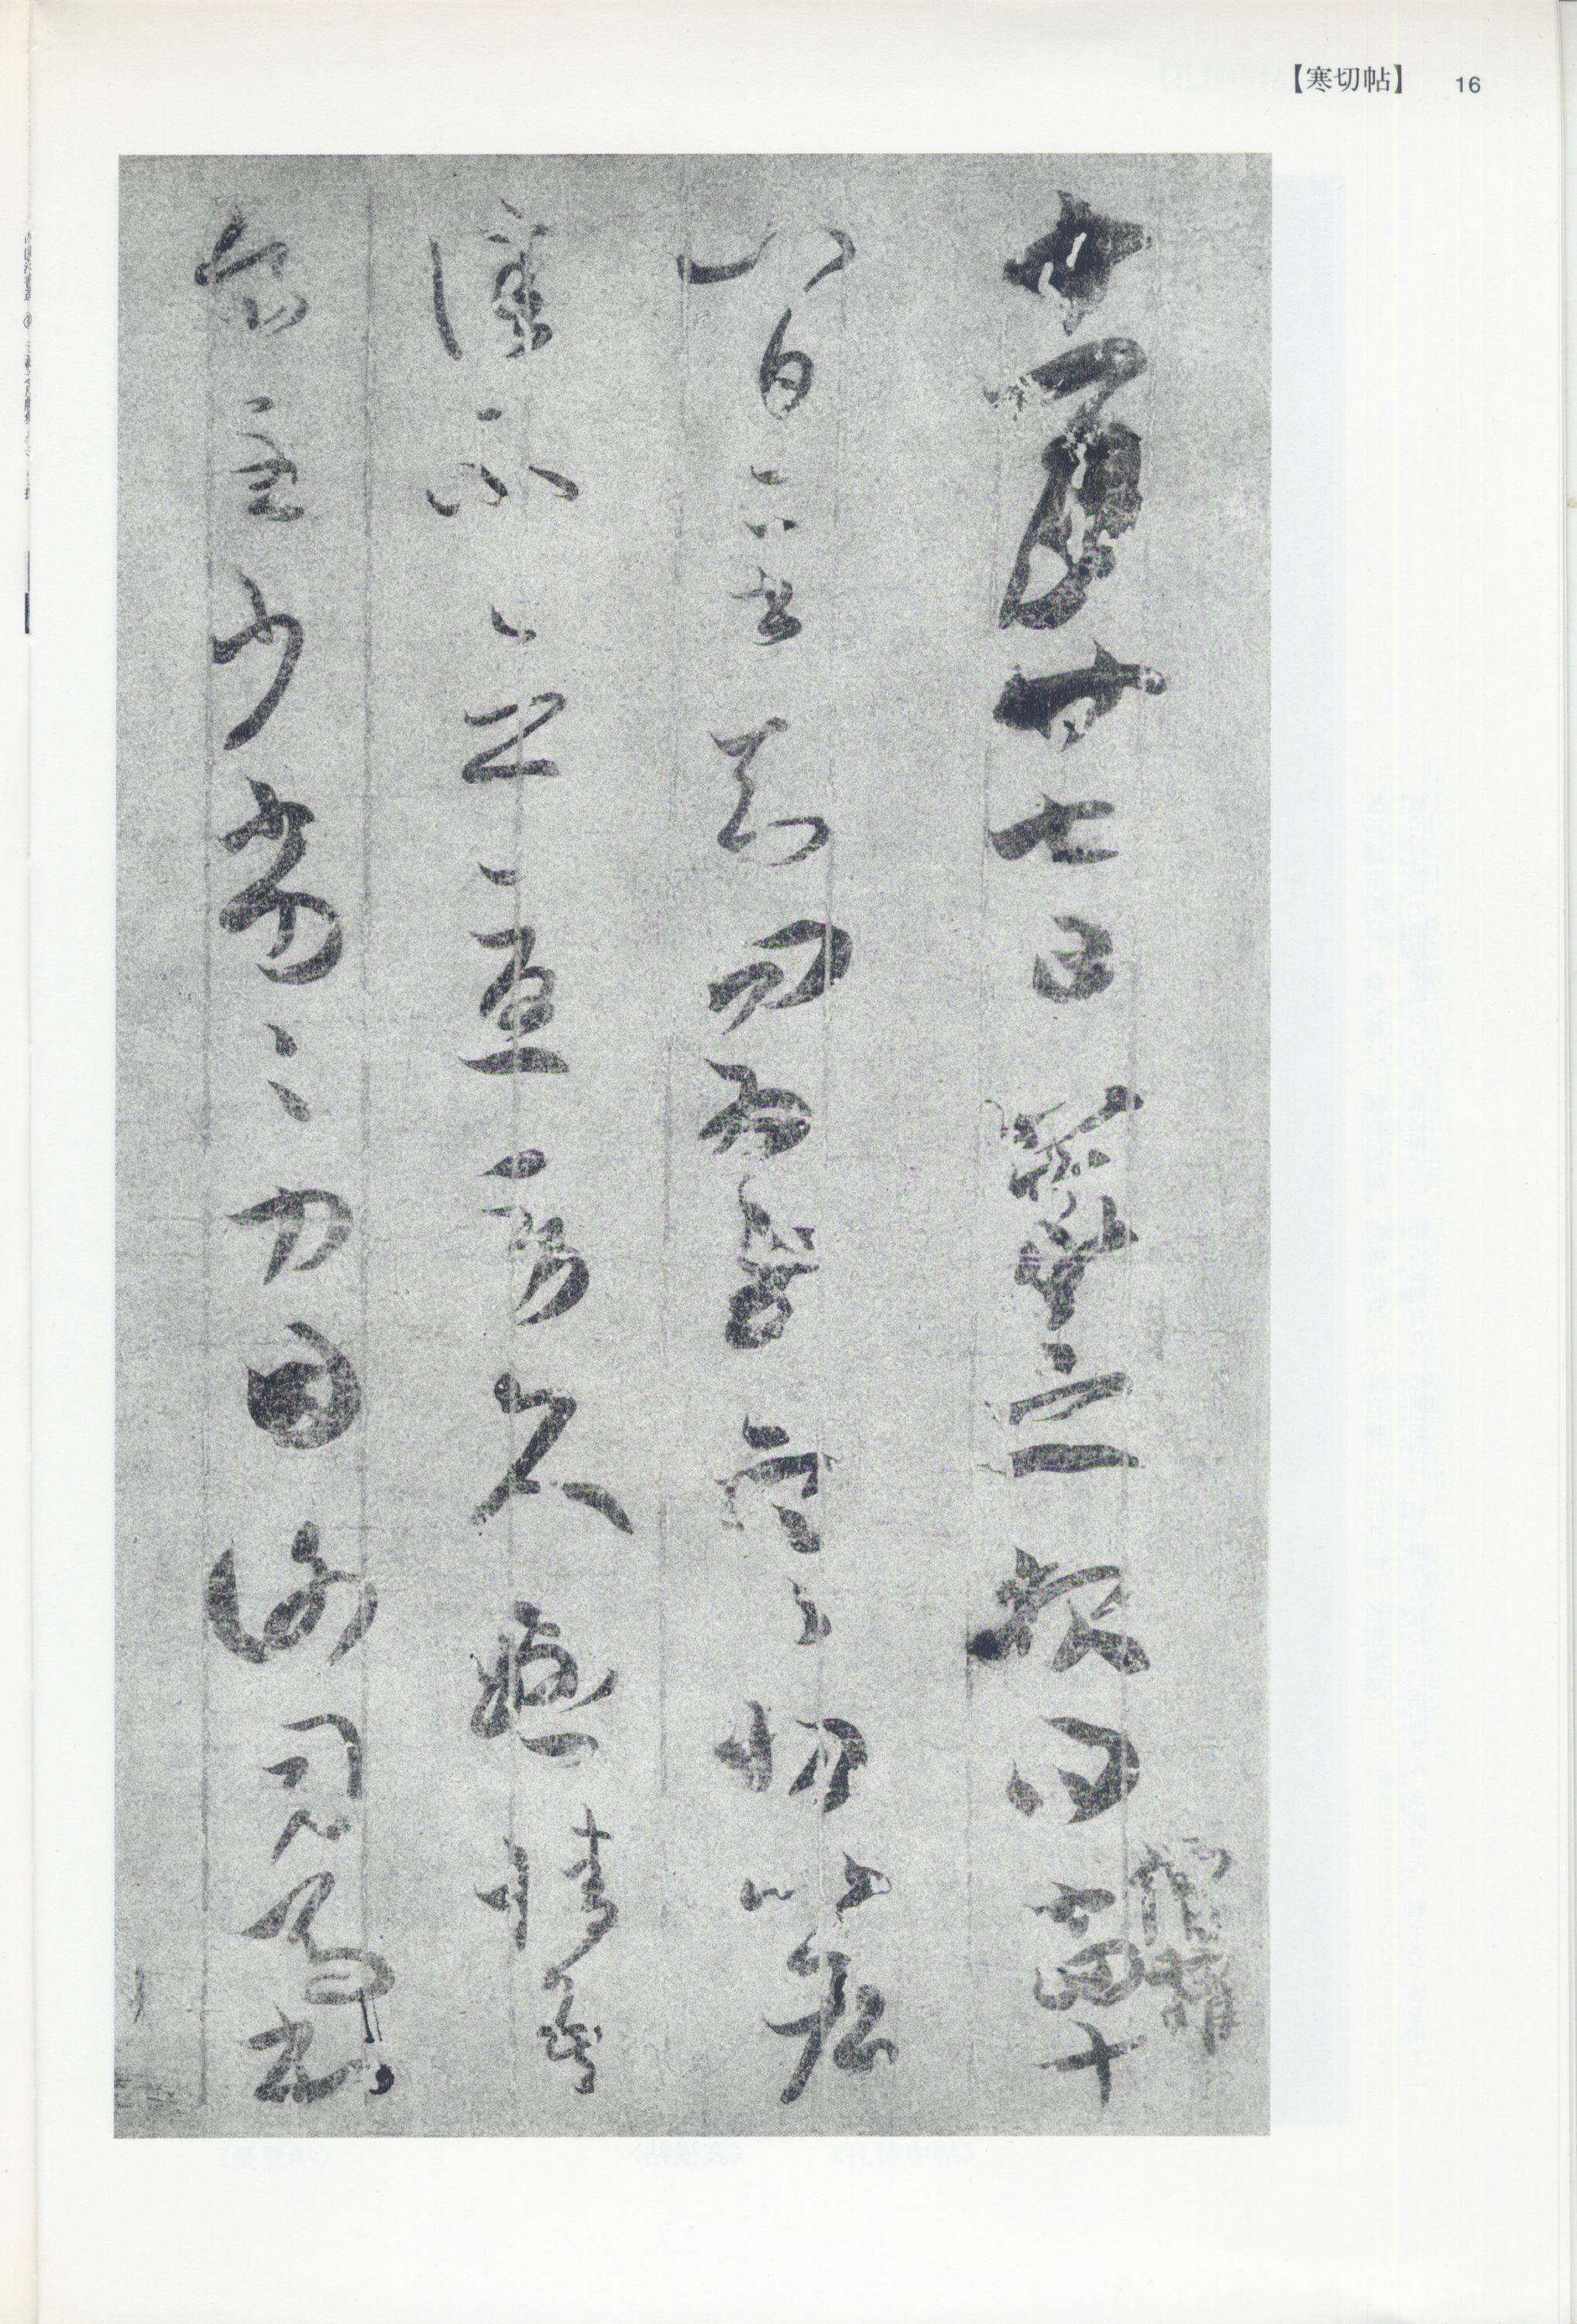 【寒切帖】 16
十一月廿七日羲之報得十四十
八日二書知問為慰寒切比各
佳不念憂勞久懸情吾
食至少劣劣力因謝司馬書
僧權